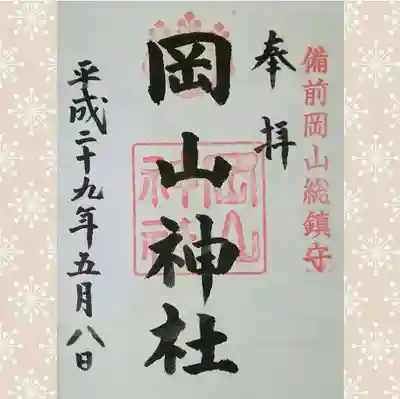 備前岡山総鎮守
奉拝
岡山神社
岡山
神社
平成二十九年五月八日